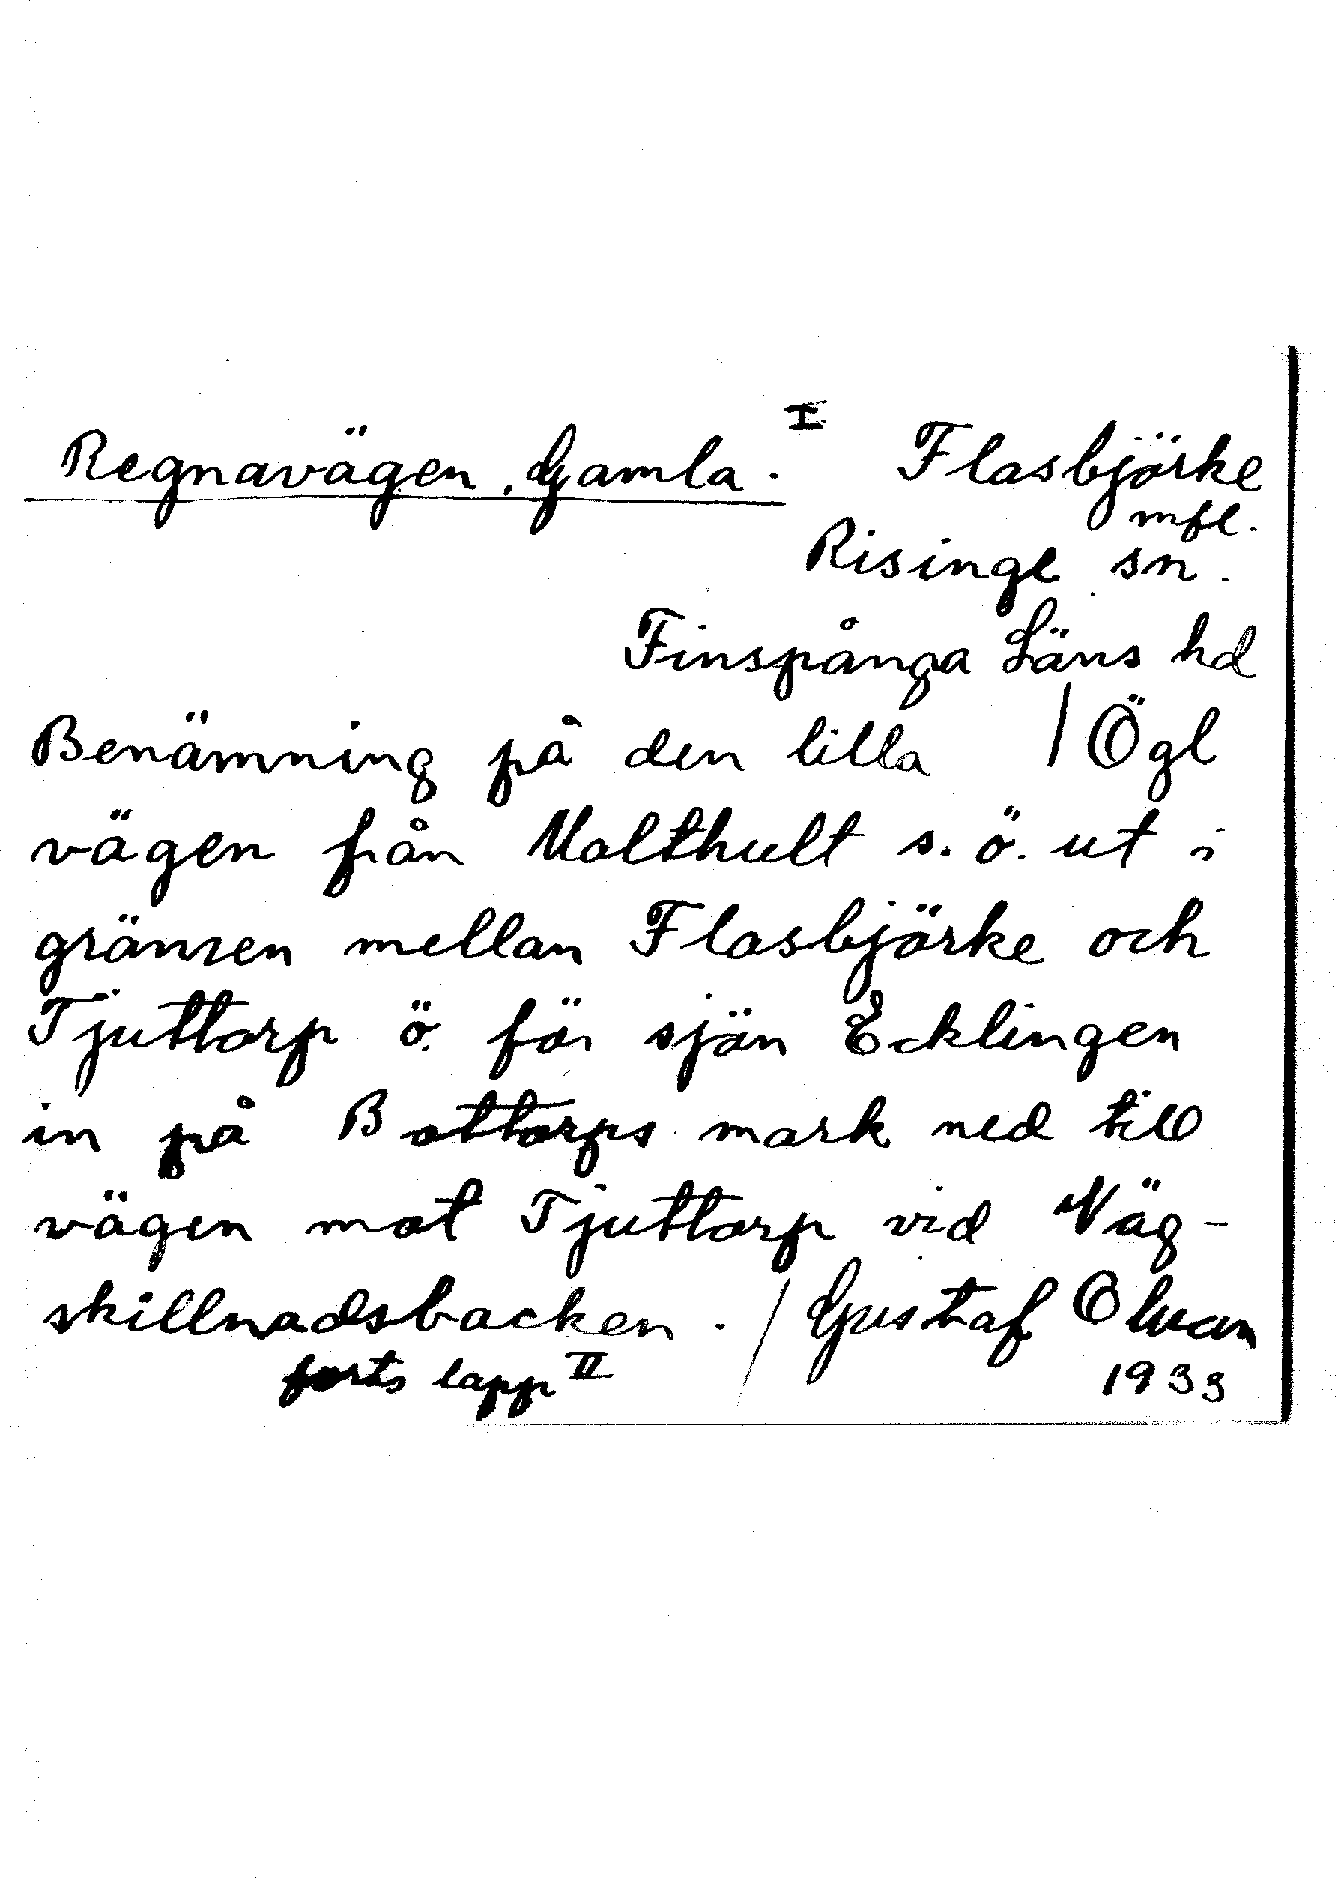 Regnavägen, Gamla. I Flasbjörke
mfl.
Risinge sn.
Finspånga Läns hd
Benämning på den lilla / Ögl
vägen från Malthult s.ö. ut i
gränsen mellan Flasbjörke och
Tjuttorp ö. för sjön Ecklingen
in på Bottorps mark ned till
vägen mot Tjuttorp vid Väg-
skillnadsbacken. / Gustaf
forts lapp II 1933